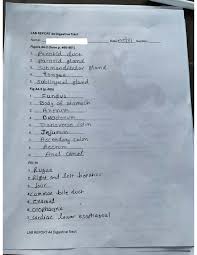 LAB REPORT 44 Digestive Tract
Name
Figure 44-3
1. Parotid duct
2. parotid gland
3. Submandibular gland
4. Tongue
5. Sublingual gland
Fig 44-4
1. Fundus
2. Body of stomach
3. Antrum
4. Duodenum
5. Transverse colon
6. Jejunum
7. Ascending colon
8. Cecum
9. Anal canal
1. Rugae
2. Right and left hepatic
3. liver
4. common bile duct
7. cardiac lower esophageal
LAB REPORT 44 Digestive Tract